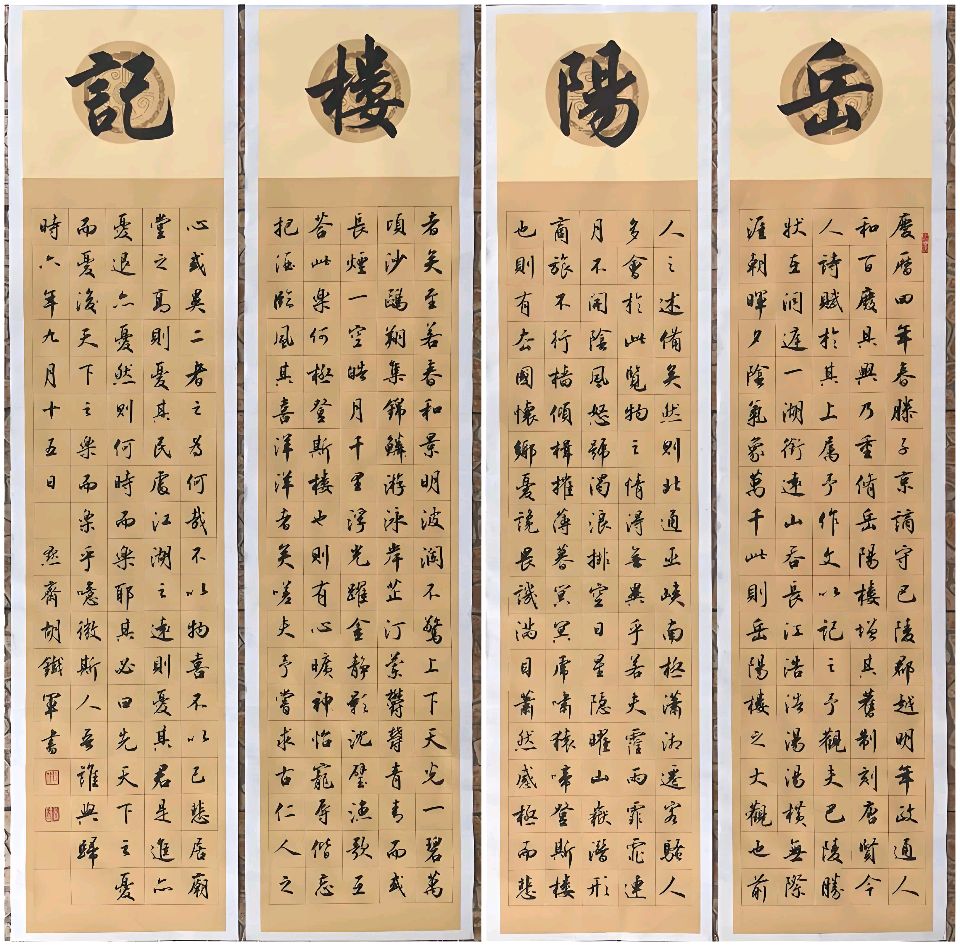 岳陽樓記
慶曆四年春滕子京謫守巴陵郡越明年政通人
和百廢具興乃重脩岳陽樓增其舊制刻唐賢今
人詩賦於其上屬予作文以記之予觀夫巴陵勝
狀在洞庭一湖銜遠山吞長江浩浩湯湯橫無際
涯朝暉夕陰氣象萬千此則岳陽樓之大觀也前
人之述備矣然則北通巫峽南極瀟湘遷客騷人
多會於此覽物之情得無異乎若夫霪雨霏霏連
月不開陰風怒號濁浪排空日星隱曜山嶽潛形
商旅不行檣傾楫摧薄暮冥冥虎嘯猿啼登斯樓
也則有去國懷鄉憂讒畏譏滿目蕭然感極而悲
者矣至若春和景明波瀾不驚上下天光一碧萬
頃沙鷗翔集錦鱗游泳岸芷汀蘭鬱鬱青青而或
長煙一空皓月千里浮光躍金靜影沈璧漁歌互
荅此樂何極登斯樓也則有心曠神怡寵辱偕忘
把酒臨風其喜洋洋者矣嗟夫予嘗求古仁人之
心或異二者之為何哉不以物喜不以己悲居廟
堂之高則憂其民處江湖之遠則憂其君是進亦
憂退亦憂然則何時而樂耶其必曰先天下之憂
而憂後天下之樂而樂乎噫微斯人吾誰與歸
時六年九月十五日 齋胡鐵軍書